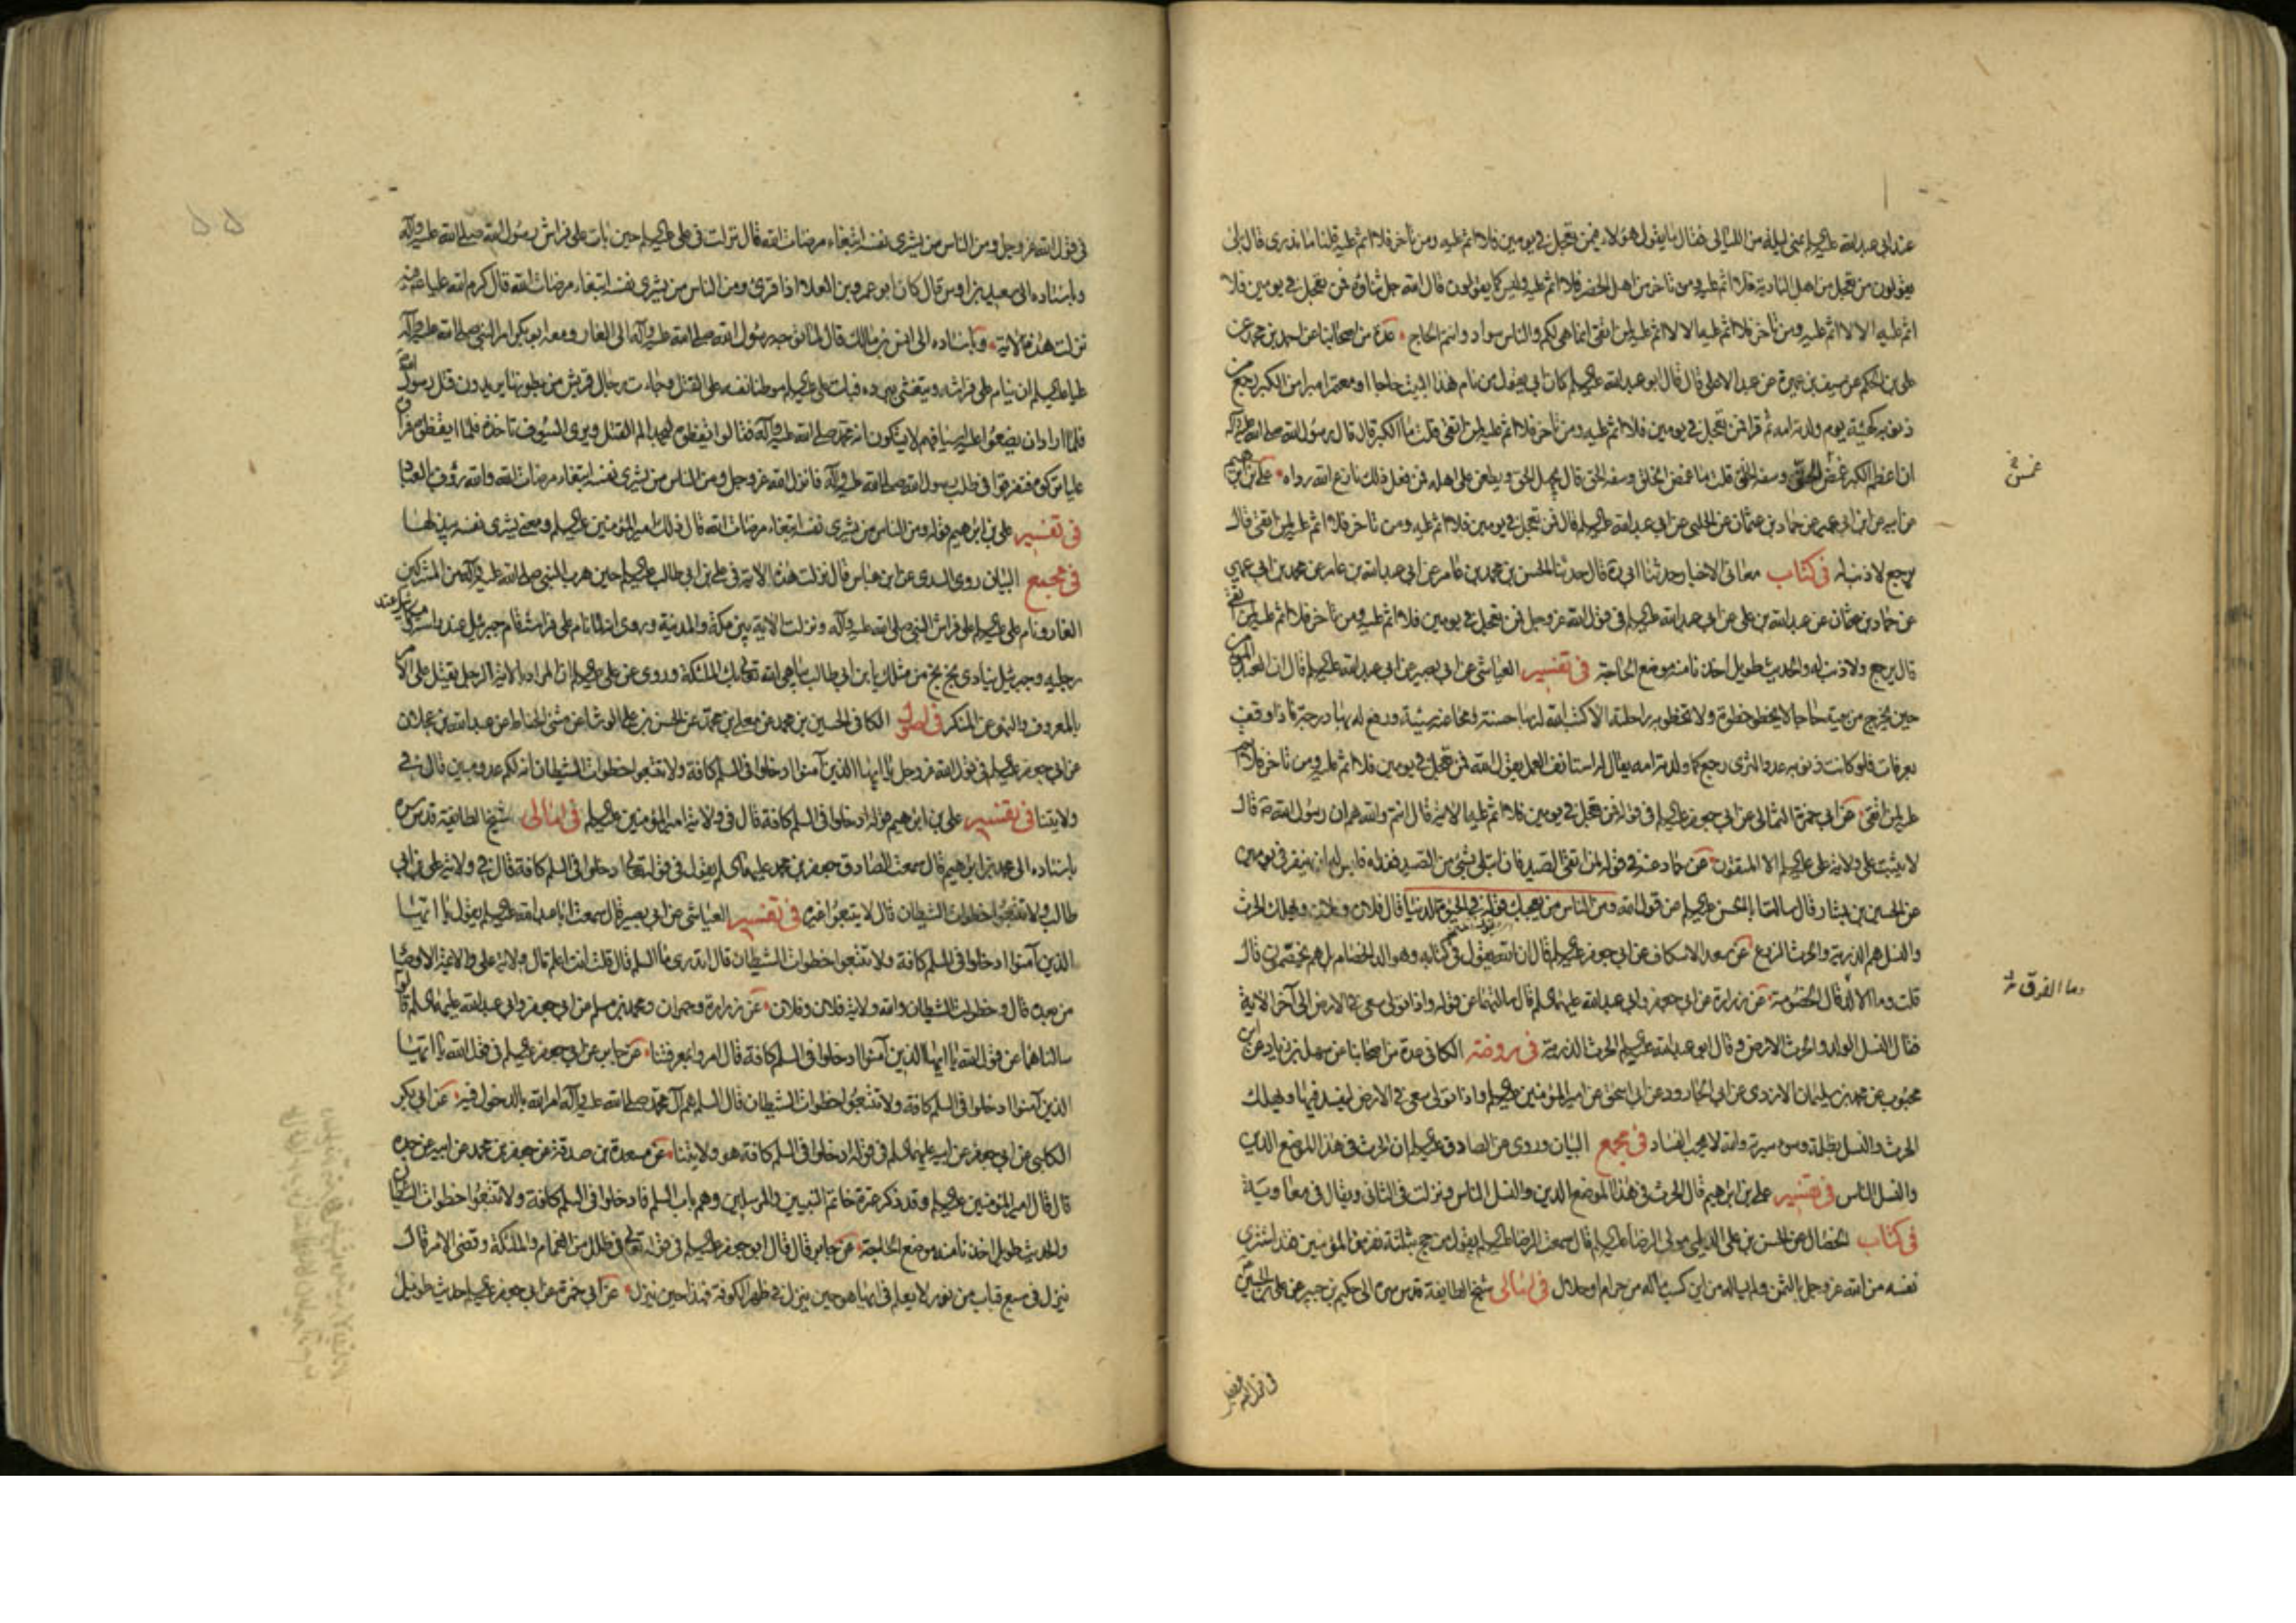 عند ابى عبد الله عليه السلام بمنى ليلة من الليالى فقال ما يقول هؤلاء فيمن تعجل فى يومين فلا اثم عليه ومن تاخر فلا اثم عليه قلنا ما ندرى قال بلى
يقولون من تعجل من اهل البادية فلا اثم عليه ومن تاخر من اهل الحضر فلا اثم عليه وليس كما يقولون قال الله جل ثناؤه فمن تعجل فى يومين فلا
اثم عليه الا لا اثم عليه ومن تاخر فلا اثم عليه الا لا اثم عليه لمن اتقى انما هى لكم والناس سواد وانتم الحاج عدة من اصحابنا عن احمد بن محمد عن
على بن الحكم عن سيف بن عميرة عن عبد الاعلى قال قال ابو عبد الله عليه السلام كان ابى يقول من ام هذا البيت حاجا او معتمرا مبرأ من الكبر رجع من
ذنوبه كهيئة يوم ولدته امه ثم قرا فمن تعجل فى يومين فلا اثم عليه ومن تاخر فلا اثم عليه لمن اتقى قلت ما الكبر قال قال رسول الله صلى الله عليه وآله
ان اعظم الكبر غمض الخلق وسفه الحق قلت ما غمض الخلق وسفه الحق قال يجهل الحق ويطعن على اهله فمن فعل ذلك نازع الله رداه على بن ابرهيم
عن ابيه عن ابن ابى عمير عن حماد بن عثمان عن الحلبى عن ابى عبد الله عليه السلام قال فمن تعجل فى يومين فلا اثم عليه ومن تاخر فلا اثم عليه لمن اتقى قال
يرجع لا ذنب له فى كتاب معانى الاخبار حدثنا ابى ره قال حدثنا الحسين بن محمد بن عامر عن ابى عبد الله بن عامر عن محمد بن ابى عمير
عن حماد بن عثمان عن عبد الله بن على عن ابى عبد الله عليه السلام فى قول الله عز وجل فمن تعجل فى يومين فلا اثم عليه ومن تاخر فلا اثم عليه لمن اتقى
قال يرجع ولا ذنب له والحديث طويل اخذنا منه موضع الحاجة فى تفسير العياشى عن ابى بصير عن ابى عبد الله عليه السلام قال ان العبد المؤمن
حين يخرج من بيته حاجا لا يخطو خطوة ولا تخطو به راحلته الا كتب الله له بها حسنة ومحا عنه سيئة ورفع له بها درجة فاذا وقف
بعرفات فلو كانت ذنوبه عدد الثرى رجع كما ولدته امه يقال له استانف العمل يقول الله فمن تعجل فى يومين فلا اثم عليه ومن تاخر فلا اثم
عليه لمن اتقى عن ابى حمزة الثمالى عن ابى جعفر عليه السلام فى قوله فمن تعجل فى يومين فلا اثم عليه الاية قال انتم والله هم ان رسول الله ص قال
لا يثبت على ولاية على عليه السلام الا المتقون عن حماد عنه فى قوله لمن اتقى الصيد فان ابتلى بشئ من الصيد ففداه فليس له ان ينفر فى يومين
عن الحسين بن بشار قال سالت ابا الحسن عليه السلام عن قول الله ومن الناس من يعجبك قوله فى الحيوة الدنيا قال فلان وفلان ويهلك الحرث
والنسل هم الذرية والحرث الزرع عن سعد الاسكاف عن ابى جعفر عليه السلام قال ان الله يقول فى كتابه وهو الد الخصام بل هم يختصمون قال
قلت وما الالد قال الخصومة عن زرارة عن ابى جعفر وابى عبد الله عليهما السلام قال سالتهما عن قوله واذا تولى سعى فى الارض الى آخر الاية
فقال النسل الولد والحرث الارض وقال ابو عبد الله عليه السلام الحرث الذرية فى روضة الكافى عدة من اصحابنا عن سهل بن زياد عن ابن
محبوب عن محمد بن سليمان الازدى عن ابى الجارود عن ابى اسحق عن امير المؤمنين عليه السلام واذا تولى سعى فى الارض ليفسد فيها ويهلك
الحرث والنسل بظلمه وسوء سيرته والله لا يحب الفساد فى مجمع البيان وروى عن الصادق عليه السلام ان الحرث فى هذا الموضع الدين
والنسل الناس فى تفسير على بن ابرهيم قال الحرث فى هذا الموضع الدين والنسل الناس ونزلت فى الثانى ويقال فى معاوية
فى كتاب الخصال عن الحسن بن على الديلمى مولى الرضا عليه السلام قال سمعت الرضا عليه السلام يقول من حج بثلثة نفر من المؤمنين فقد اشترى
نفسه من الله عز وجل بالثمن ولم يساله من اين كسب ماله من حرام او حلال فى امالى شيخ الطايفة قدس سره الى حكيم بن جبير عن على بن الحسين
وما الفرق
فى قول الله
فى قول الله عز وجل ومن الناس من يشرى نفسه ابتغاء مرضات الله قال نزلت فى على عليه السلام حين بات على فراش رسول الله صلى الله عليه وآله
وباسناده الى سعيد بن اوس قال كان ابو عمرو بن العلاء اذا قرئ ومن الناس من يشرى نفسه ابتغاء مرضات الله قال كرم الله عليا فيه
نزلت هذه الاية وباسناده الى انس بن مالك قال لما توجه رسول الله صلى الله عليه وآله الى الغار ومعه ابو بكر امر النبى صلى الله عليه وآله
عليا عليه السلام ان ينام على فراشه ويتغشى ببرده فبات على عليه السلام موطنا نفسه على القتل وجاءت رجال قريش من بطونها يريدون قتل رسول الله
فلما ارادوا ان يضعوا عليه اسيافهم لا يشكون انه محمد صلى الله عليه وآله فقالوا ايقظوه ليجد الم القتل ويرى السيوف تاخذه فلما ايقظوه فراوه
عليا تركوه فتفرقوا فى طلب رسول الله صلى الله عليه وآله فانزل الله عز وجل ومن الناس من يشرى نفسه ابتغاء مرضات الله والله رؤف بالعباد
فى تفسير على بن ابرهيم قوله ومن الناس من يشرى نفسه ابتغاء مرضات الله قال ذلك امير المؤمنين عليه السلام ومعنى يشرى نفسه يبذلها
فى مجمع البيان روى السدى عن ابن عباس قال نزلت هذه الاية فى على بن ابى طالب عليه السلام حين هرب النبى صلى الله عليه وآله من المشركين
الغار ونام على عليه السلام على فراش النبى صلى الله عليه وآله ونزلت الاية بين مكة والمدينة وروى انه لما نام على فراشه قام جبرئيل عند راسه وميكائيل عند
رجليه وجبرئيل ينادى بخ بخ من مثلك يا بن ابى طالب يباهى الله تعالى بك الملئكة وروى عن على عليه السلام ان المراد بالاية الرجل يقتل على الامر
بالمعروف والنهى عن المنكر فى اصول الكافى الحسين بن محمد عن معلى بن محمد عن الحسن بن على الوشا عن مثنى الحناط عن عبد الله بن عجلان
عن ابى جعفر عليه السلام فى قول الله عز وجل يا ايها الذين آمنوا ادخلوا فى السلم كافة ولا تتبعوا خطوات الشيطان انه لكم عدو مبين قال فى
ولايتنا فى تفسير على بن ابرهيم قوله ادخلوا فى السلم كافة قال فى ولاية امير المؤمنين عليه السلام فى امالى شيخ الطايفة قدس سره
باسناده الى محمد بن ابرهيم قال سمعت الصادق جعفر بن محمد عليهما السلام يقول فى قوله تعالى ادخلوا فى السلم كافة قال فى ولاية على بن ابى
طالب ولا تتبعوا خطوات الشيطان قال لا يتبعوا غيره فى تفسير العياشى عن ابى بصير قال سمعت ابا عبد الله عليه السلام يقول يا ايها
الذين آمنوا ادخلوا فى السلم كافة ولا تتبعوا خطوات الشيطان قال اتدرى ما السلم قال قلت انت اعلم قال ولاية على والائمة الاوصيا
من بعده قال وخطوات الشيطان والله ولاية فلان وفلان عن زرارة وحمران ومحمد بن مسلم عن ابى جعفر وابى عبد الله عليهما السلام قالوا
سالناهما عن قول الله يا ايها الذين آمنوا ادخلوا فى السلم كافة قال امروا بمعرفتنا عن جابر عن ابى جعفر عليه السلام فى قول الله يا ايها
الذين آمنوا ادخلوا فى السلم كافة ولا تتبعوا خطوات الشيطان قال السلم هم آل محمد صلى الله عليه وآله امر الله بالدخول فيه عن ابى بكر
الكلبى عن ابى جعفر عن ابيه عليهما السلام فى قوله ادخلوا فى السلم كافة هو ولايتنا عن مسعدة بن صدقة عن جعفر بن محمد عن ابيه عن جده
قال قال امير المؤمنين عليه السلام وقد ذكر عترة خاتم النبيين والمرسلين وهم باب السلم فادخلوا فى السلم كافة ولا تتبعوا خطوات الشيطان
والحديث طويل اخذنا منه موضع الحاجة عن جابر قال قال ابو جعفر عليه السلام فى قوله تعالى فى ظلل من الغمام والملئكة وقضى الامر قال
ينزل فى سبع قباب من نور لا يعلم فى ايها هو حين ينزل فى ظهر الكوفة فهذا حين ينزل عن ابى حمزة عن ابى جعفر عليه السلام حديث طويل